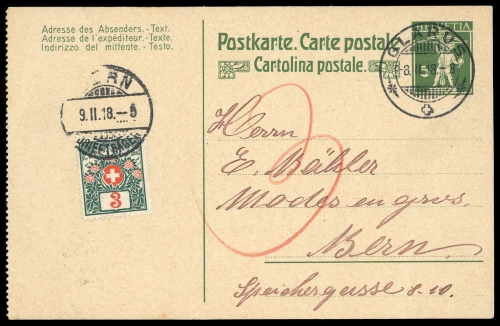 Adresse des Absenders. - Text.
Adresse de l'expéditeur. - Texte.
Indirizzo del mittente. - Testo.
Postkarte. Carte postale
Cartolina postale.
HELVETIA
GLARUS
8. II. 18. - 8
5
BERN
9. II. 18. - 5
BRIEFTRÄGER
3
3
Herrn
E. Bähler
Modes en gros.
Bern.
Speichergasse 8-10.